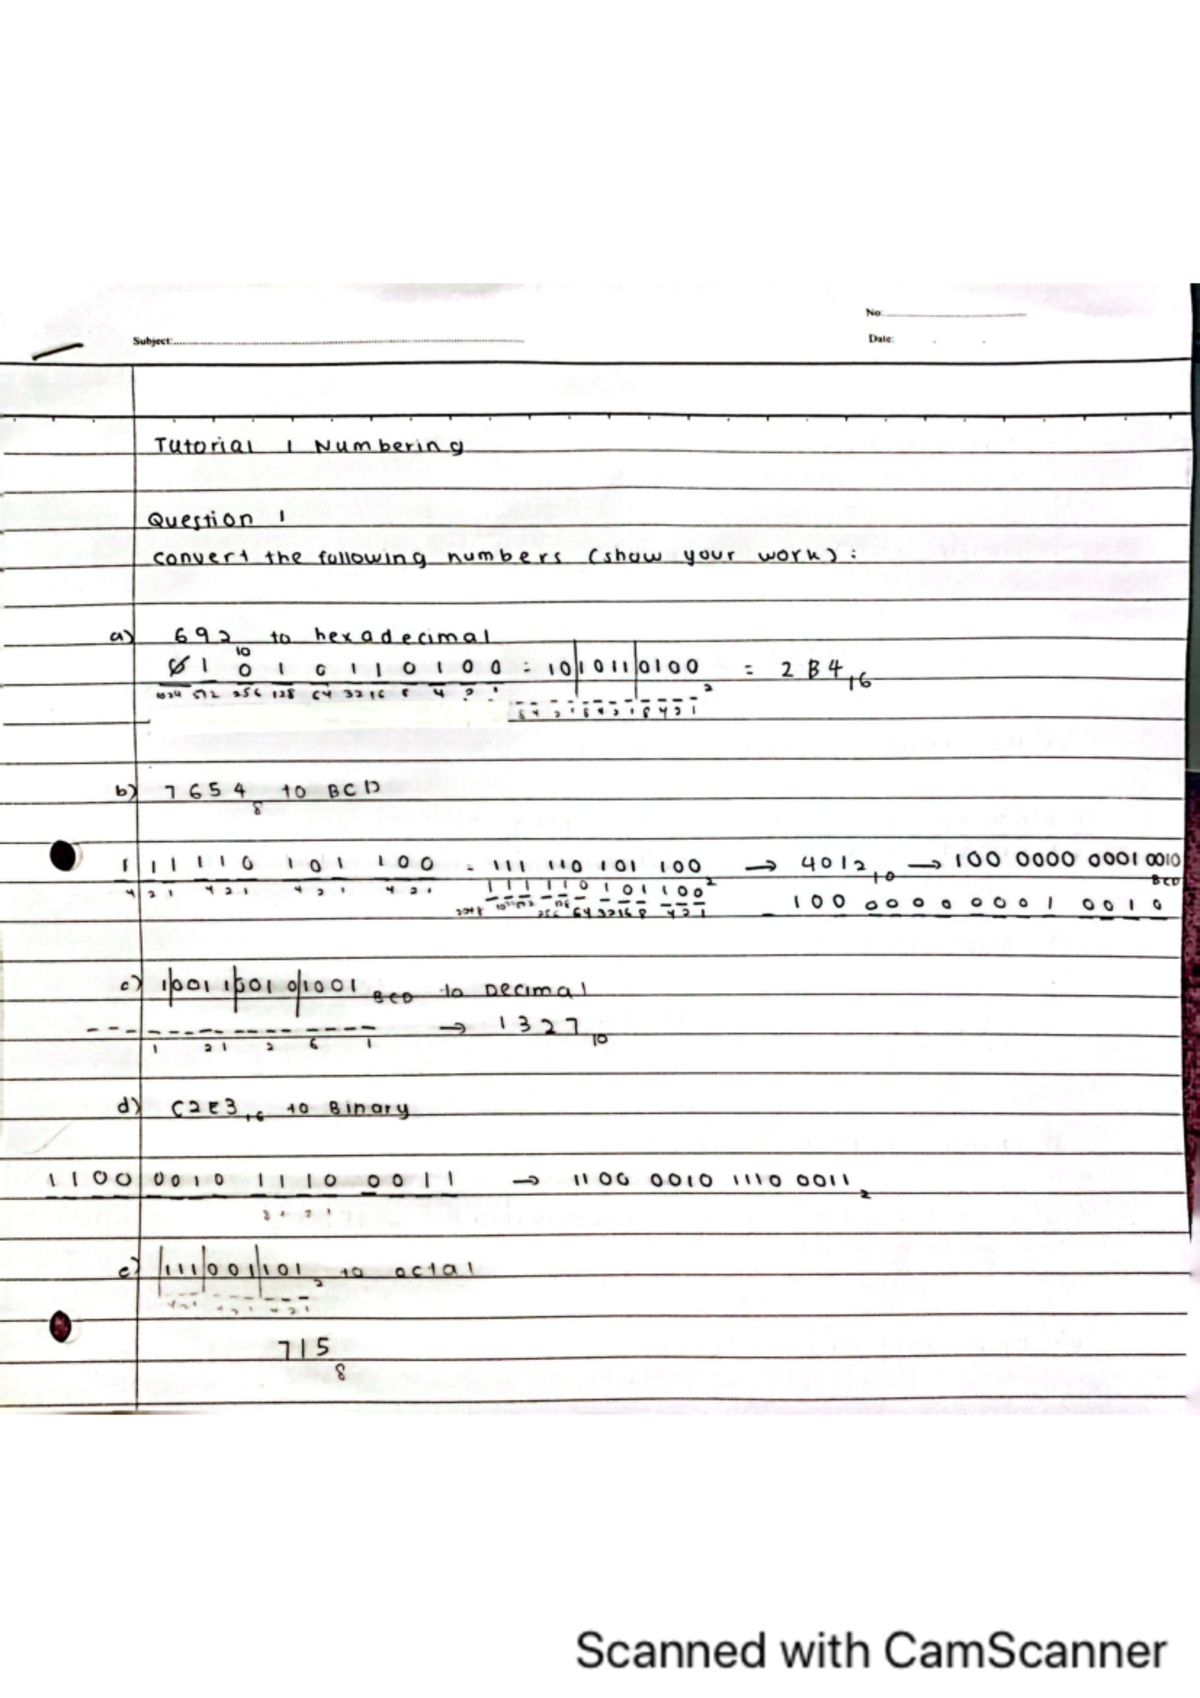 No:
Subject:
Date:
Tutorial 1 Numbering
Question 1
Convert the following numbers (show your work) :
a) 692₁₀ to hexadecimal
0 1 0 1 0 1 1 0 1 0 0 = 10|1011|0100₂ = 2B4₁₆
1024 512 256 128 64 32 16 8 4 2 1
8 4 2 1 8 4 2 1 8 4 2 1
b) 7654₈ to BCD
1 1 1 1 1 0 1 0 1 1 0 0 = 111 110 101 100₂ → 4012₁₀ → 100 0000 0001 0010 BCD
4 2 1 4 2 1 4 2 1 4 2 1
1 1 1 1 1 0 1 0 1 1 0 0
2048 1024 512 256 128 64 32 16 8 4 2 1
100 0000 0001 0010
c) 1|0011|001 0|1001 BCD to Decimal
1 2 1 2 6 1 → 1327₁₀
d) C2E3₁₆ to Binary
1100 0010 1110 0011 → 1100 0010 1110 0011₂
e) |111|001|101₂ to octal
4 2 1 4 2 1 4 2 1
715₈
Scanned with CamScanner